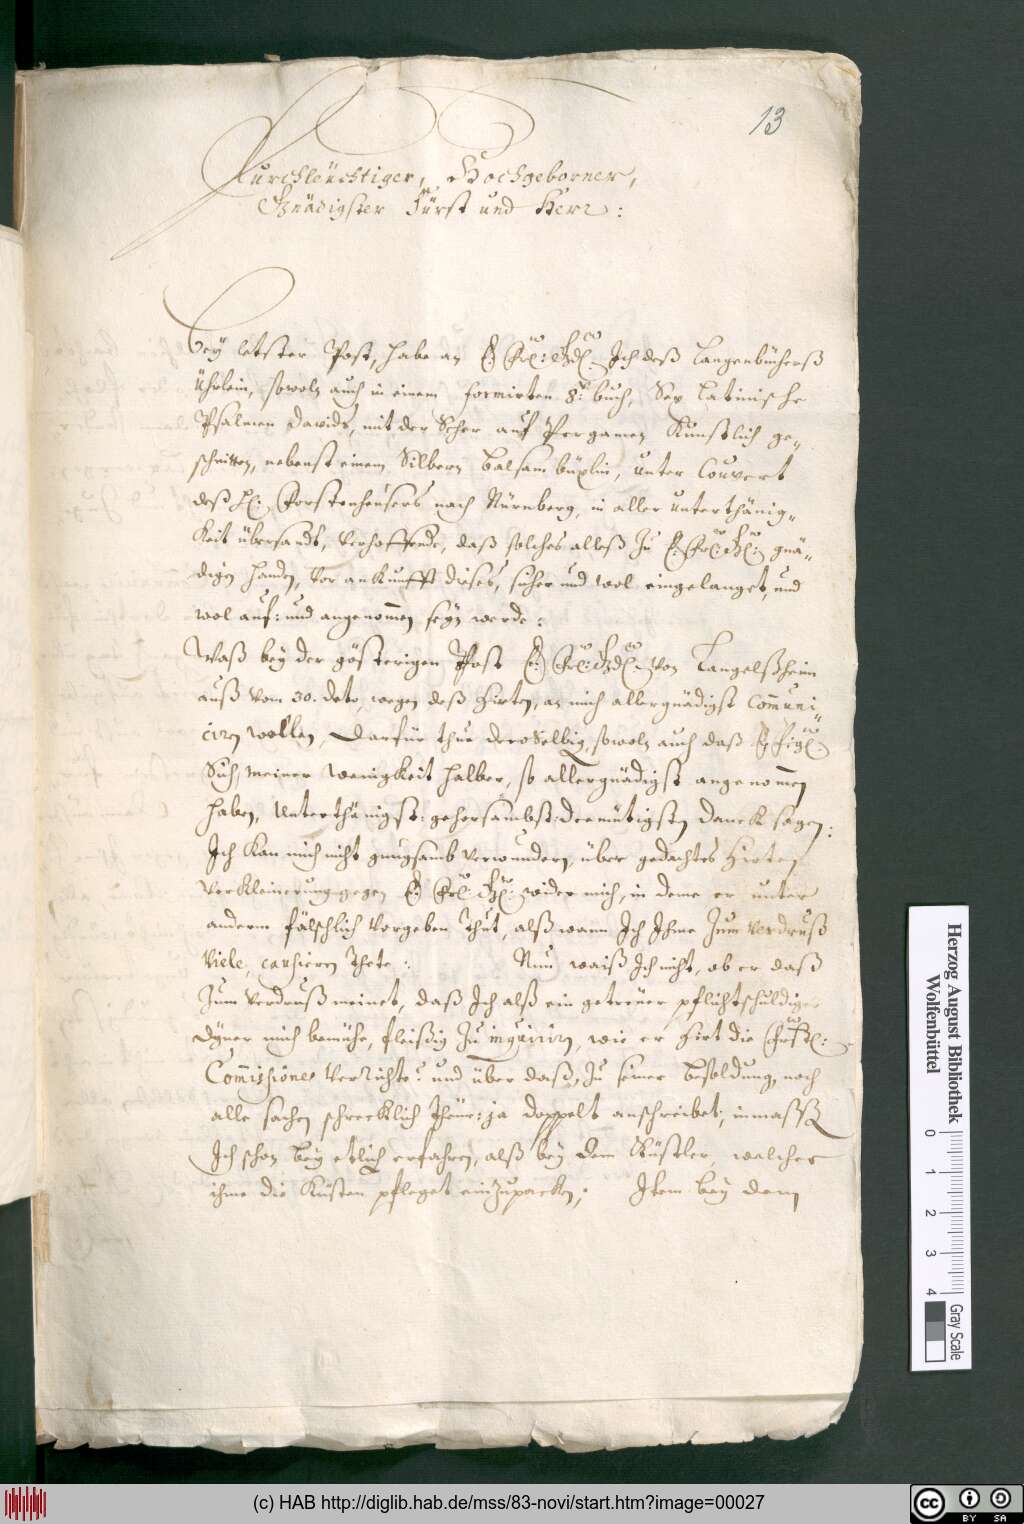 13
Durchleüchtiger, Hochgeborner,
Gnädigster Fürst und Herr:
Bey letster Post, habe an E. Frl: Gdl. Ich deß Langenbüchers
Ührlein, sowoln auch in einem formirten 8.º buch, Sex Latinische
Psalmen Davids, mit der Scher auf Pergamen Kunstlich ge„
schnitten, nebenst einem Silbern Balsam büxlin, unter Couvert
deß H: Forstenheusers nach Nürnberg, in aller unterthänig„
Keit übersandt, verhoffende, daß solches alleß zu E. Frl: Gl: gnä„
digen handen, vor ankunfft dieses, sicher und wol eingelanget, und
wol auf: und angenommen seyn werde:
Waß bey der gösterigen Post E: Frl: Gdl. von Langelßheim
auß vom 30. deto, wegen deß Hirten, an mich allergnädigst Communi„
ciren wollen, Darfür thue deroselbig, sowoln auch daß
Sich, meiner wenigkeit halber, so allergnädigst angenommen
haben, Unterthänigst: gehorsambst: demütigsten danck sagen:
Ich Kan mich nicht gnugsamb verwundern, über gedachtes Hirten
verkleinerung gegen E. Frl: Gl: wider mich, in deme er unter
anderm fälschlich vorgeben thut, alß wann Ich Ihme zum verdruß
viele, causieren thete: Nun waiß Ich nicht, ob er daß
zum verdruß meinet, daß Ich alß ein getreuer pflichtschuldiger
dyner mich bemühe, fleißig zu inquiriren, wie er Hirt die Fürstl:
Commissiones verrichte? und über daß, zu seiner besoldung, noch
alle sachen schrecklich theuer: ja doppelt anschreibet, inmassen
Ich schon bey etlich erfahren, alß bey dem Küstler, welcher
ihme die Küsten pfleget einzupacken; Item bey dem
Herzog August Bibliothek
Wolfenbüttel
0 1 2 3 4
Gray Scale
(c) HAB http://diglib.hab.de/mss/83-novi/start.htm?image=00027
cc BY SA